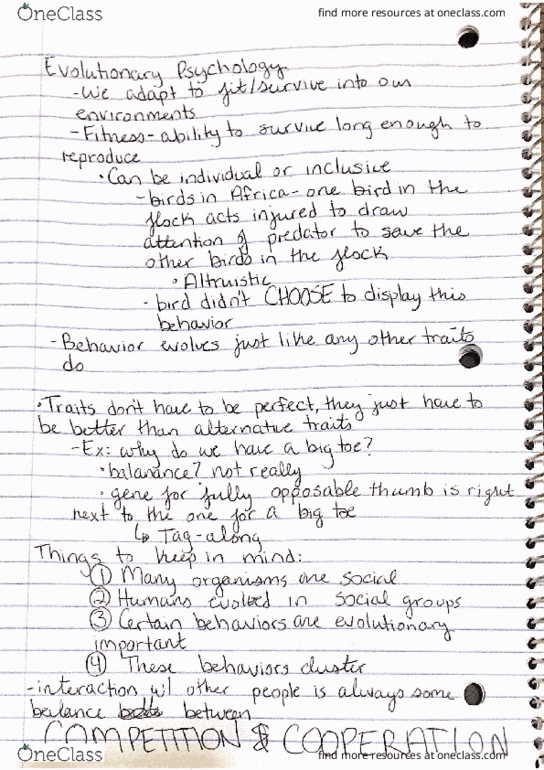 OneClass
find more resources at oneclass.com
Evolutionary Psychology
-We adapt to fit/survive into our
environments
-Fitness-ability to survive long enough to
reproduce
•Can be individual or inclusive
-birds in Africa-one bird in the
flock acts injured to draw
attention of predator to save the
other birds in the flock
•Altruistic
-bird didn't CHOOSE to display this
behavior
-Behavior evolves just like any other traits
do
•Traits don't have to be perfect, they just have to
be better than alternative traits
-Ex: why do we have a big toe?
•balanance? not really
•gene for fully opposable thumb is right
next to the one for a big toe
↳ Tag-along
Things to keep in mind:
① Many organisms are social
② Humans evolved in social groups
③ Certain behaviors are evolutionary
important
④ These behaviors cluster
-interaction w/ other people is always some
balance between
COMPETITION & COOPERATION
OneClass
find more resources at oneclass.com